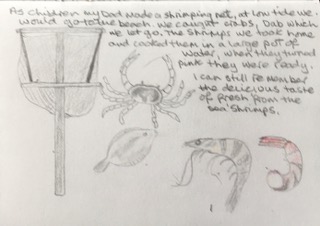 As children my Dad made a shrimping net, at low tide we
would go to the beach we caught crabs, Dab which
we let go. The shrimps we took home
and cooked them in a large pot of
water, when they turned
pink they were ready.
I can still remember
the delicious taste
of fresh from the
sea shrimps.